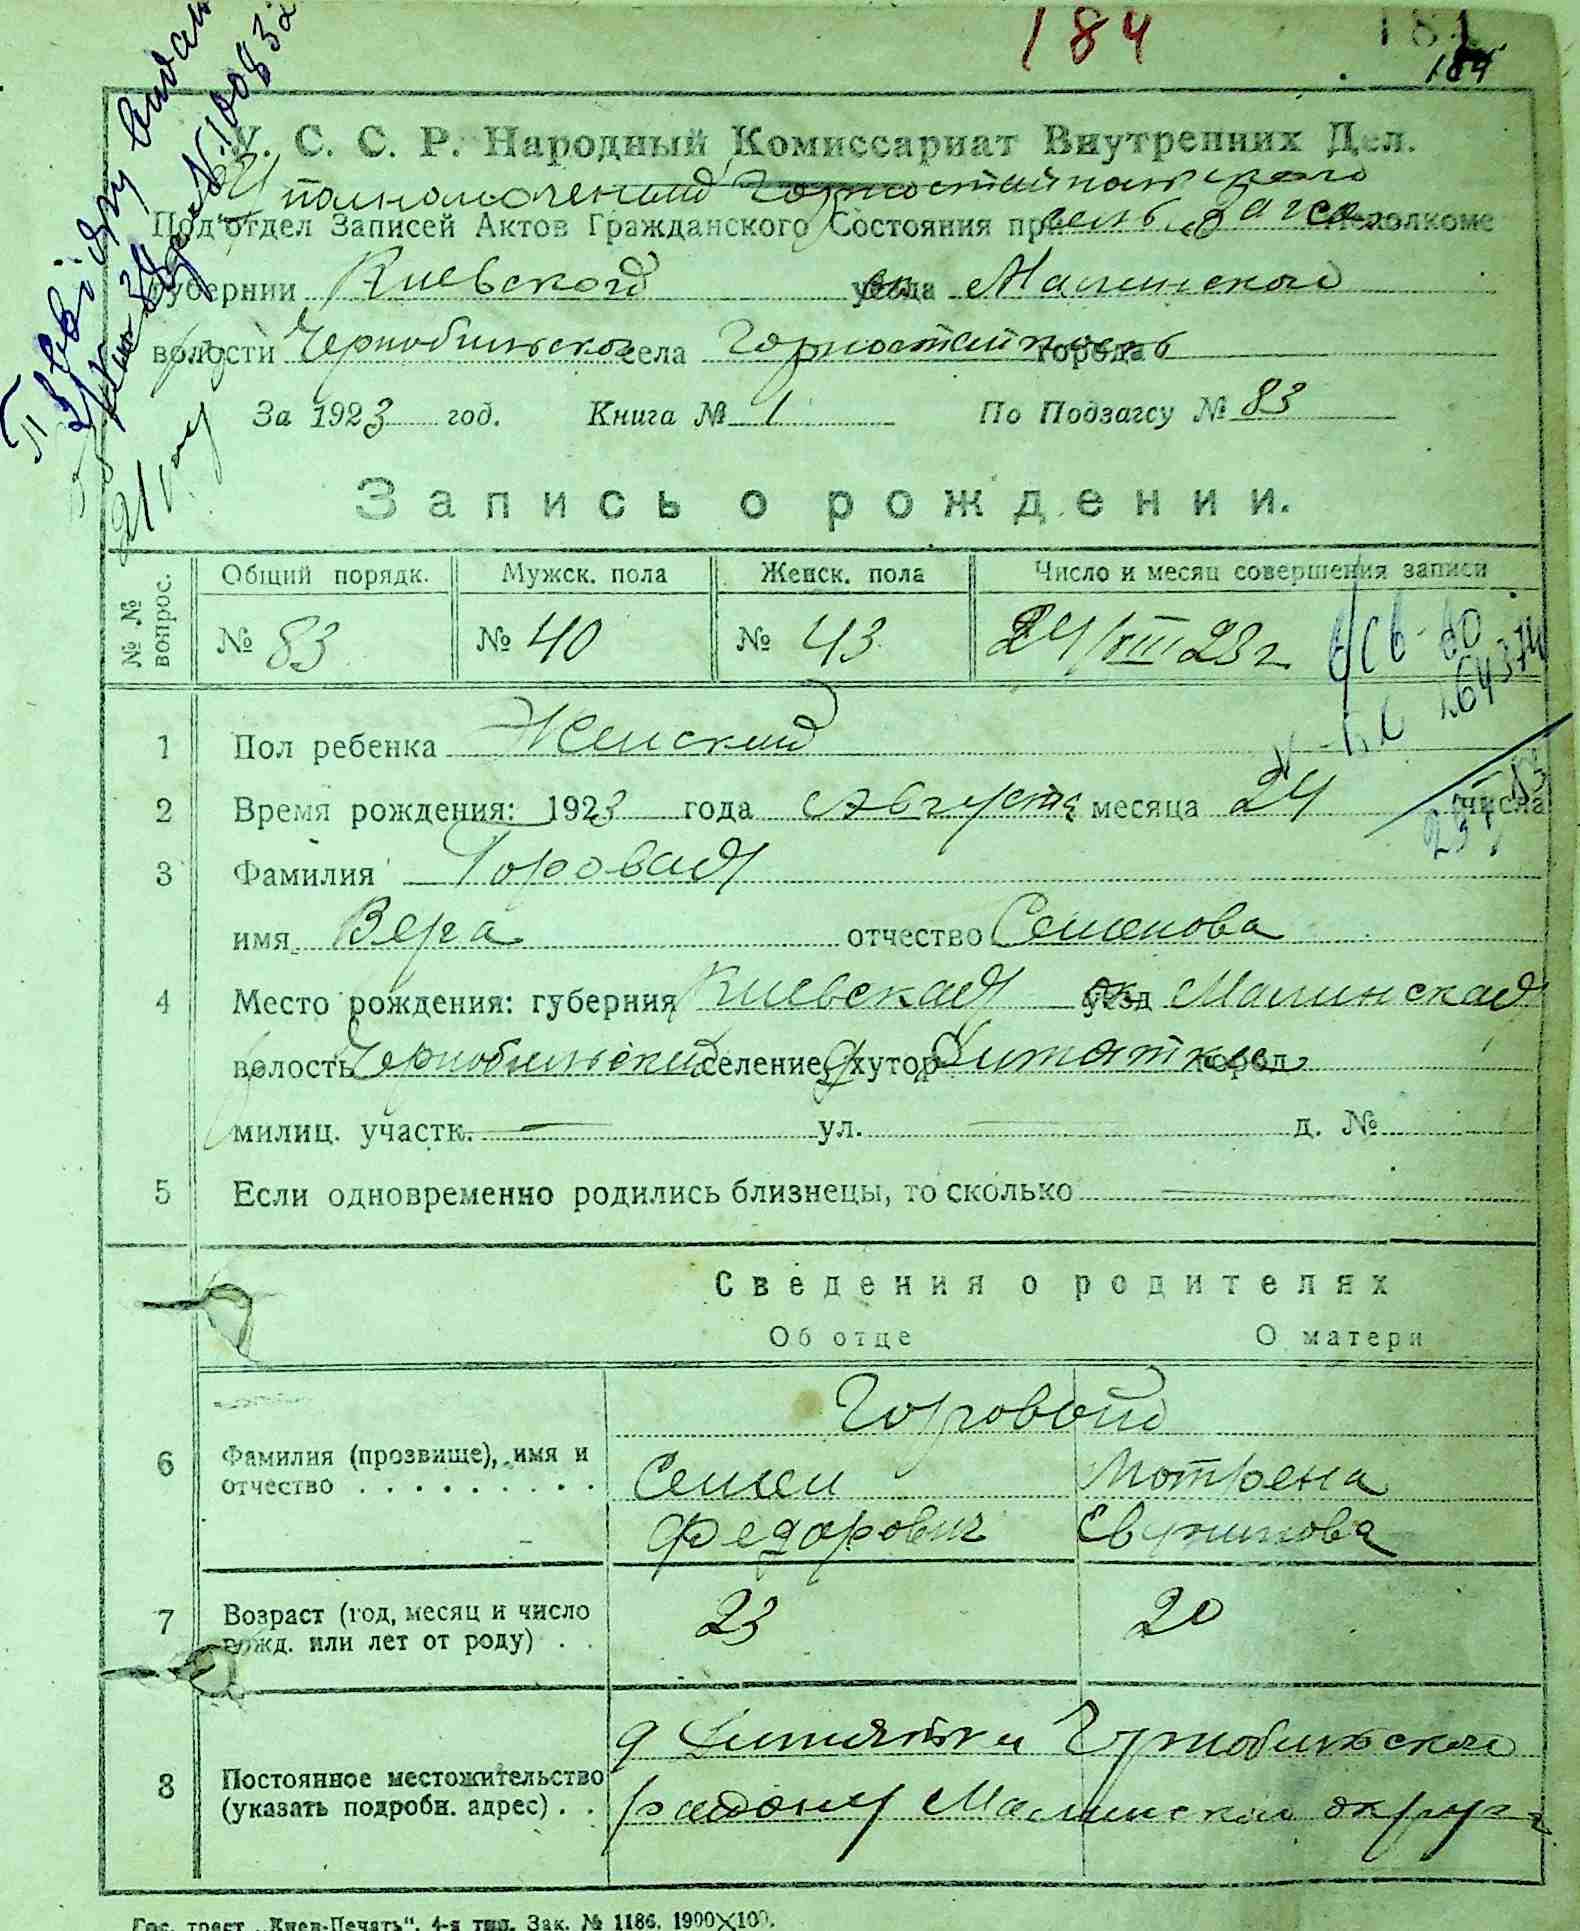 184
184
У. С. С. Р. Народный Комиссариат Внутренних Дел.
Подотдел Записей Актов Гражданского Состояния при
Губернии Киевского уезда Малинского
волости Чернобильског села Горностайполь города
За 1923 год. Книга № 1 По Подзагсу № 83
Запись о рождении.
№ № вопрос. Общий порядк. Мужск. пола Женск. пола Число и месяц совершения записи
№ 83 № 40 № 43 24/VIII 23 г.
1 Пол ребенка Женский
2 Время рождения: 1923 года Августа месяца 24 числа
3 Фамилия Горовая
имя Вера отчество Семенова
4 Место рождения: губерния Киевская уезд Малинская
волость Чернобильский селение, хутор город
милиц. участк. — ул. — д. №
5 Если одновременно родились близнецы, то сколько —
Сведения о родителях
Об отце О матери
Горовой
6 Фамилия (прозвище), имя и отчество . . . . . . . . . .
Семен Мотрена
Федорович
7 Возраст (год, месяц и число рожд. или лет от роду) . . 23 20
8 Постоянное местожительство (указать подробн. адрес) . .
д Чернобильского
району Малинской округи
Гос. трест „Киев-Печать“. 4-я тип. Зак. № 1186. 1900×100.